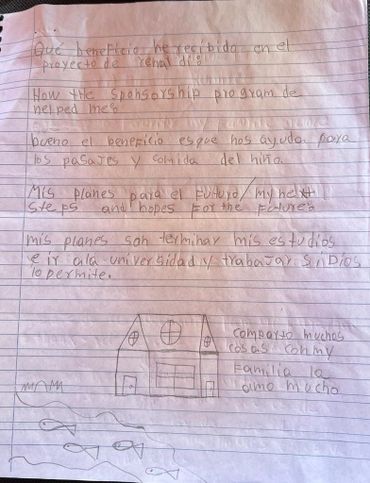 Qué beneficio he recibido en el
proyecto de renal di:
How the sponsorship program de
helped me:
bueno el beneficio es que nos ayuda para
los pasajes y comida del niña.
Mis planes para el Futuro/my next
steps and hopes For the Future:
mis planes son terminar mis estudios
e ir ala universidad y trabajar si Dios
lo permite.
comparto muchas
cosas con my
Familia la
amo mucho